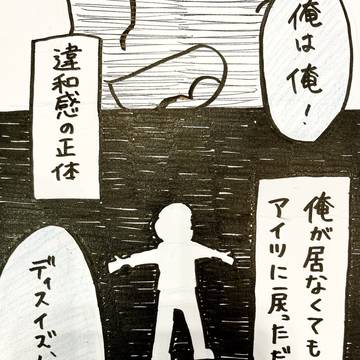 俺は俺!
違和感の正体
俺が居なくても
アイツに戻っただ
ディスイズ